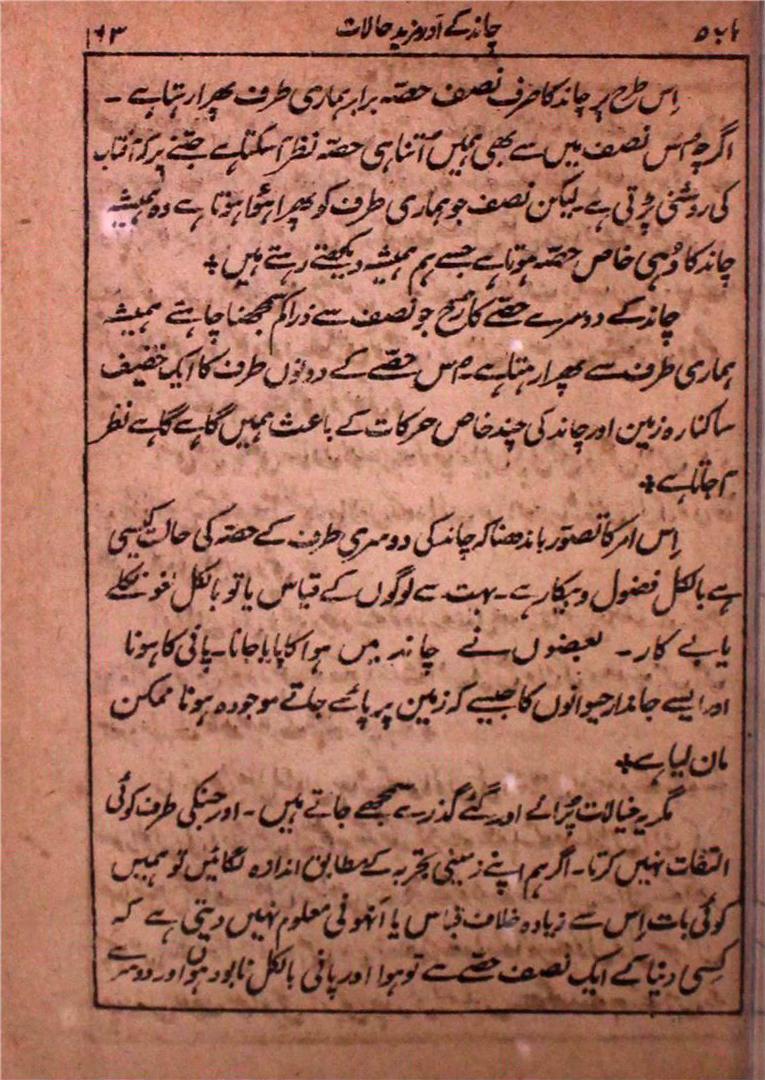 چاند کے اَور مزید حالات ۱۶۳
اِس طرح پر چاند کا صرف نصف حصّہ برابر ہماری طرف پھرا رہتا ہے ۔
اگرچہ اُس نصف میں سے بھی ہمیں اُتنا ہی حصّہ نظر آسکتا ہے جتنے پر کہ آفتاب
کی روشنی پڑتی ہے۔ لیکن نصف جو ہماری طرف کو پھرا ہُوا ہوتا ہے وہ ہمیشہ
چاند کا وُہی خاص حصّہ ہوتا ہے جسے ہم ہمیشہ دیکھتے رہتے ہیں ٭
چاند کے دوسرے حصّے کا رُخ جو نصف سے ذرا کم سمجھنا چاہئے ہمیشہ
ہماری طرف سے پھرا رہتا ہے۔ اُس حصّے کے دونوں طرف کا ایک خفیف
سا کنارہ زمین اور چاند کی چند خاص حرکات کے باعث ہمیں گاہے گاہے نظر
آ جاتا ہے ٭
اِس امر کا تصوّر باندھنا کہ چاند کی دوسری طرف کے حصّہ کی حالت کیسی
ہے بالکل فضول و بیکار ہے۔ بہت سے لوگوں کے قیاس یا تو بالکل لغو نکلے
یا بے کار ۔ بعضوں نے چاند میں ہوا کا پایا جانا۔ پانی کا ہونا
اور ایسے جاندار حیوانوں کا جیسے کہ زمین پر پائے جاتے موجودہ ہونا ممکن
مان لیا ہے ٭
مگر یہ خیالات پُرانے اور گئے گذرے سمجھے جاتے ہیں ۔ اور جنکی طرف کوئی
التفات نہیں کرتا۔ اگر ہم اپنے زمینی تجربہ کے مطابق اندازہ لگائیں تو ہمیں
کوئی بات اِس سے زیادہ خلاف قیاس یا اَنہونی معلوم نہیں دیتی ہے کہ
کِسی دنیا کے ایک نصف حصّے سے تو ہوا اور پانی بالکل نابود ہوں اور دوسرے